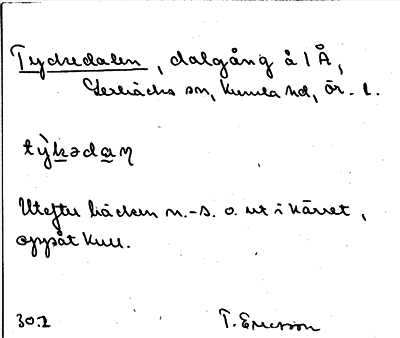 Tyckedalen, dalgång å 1 Å,
Lerbäcks sn, Kumla hd, Ör. l.
tỳkədaɳ
Utefter bäcken n.-s. o. ut i kärret,
oppåt Kull.
30.2 T. Ericsson